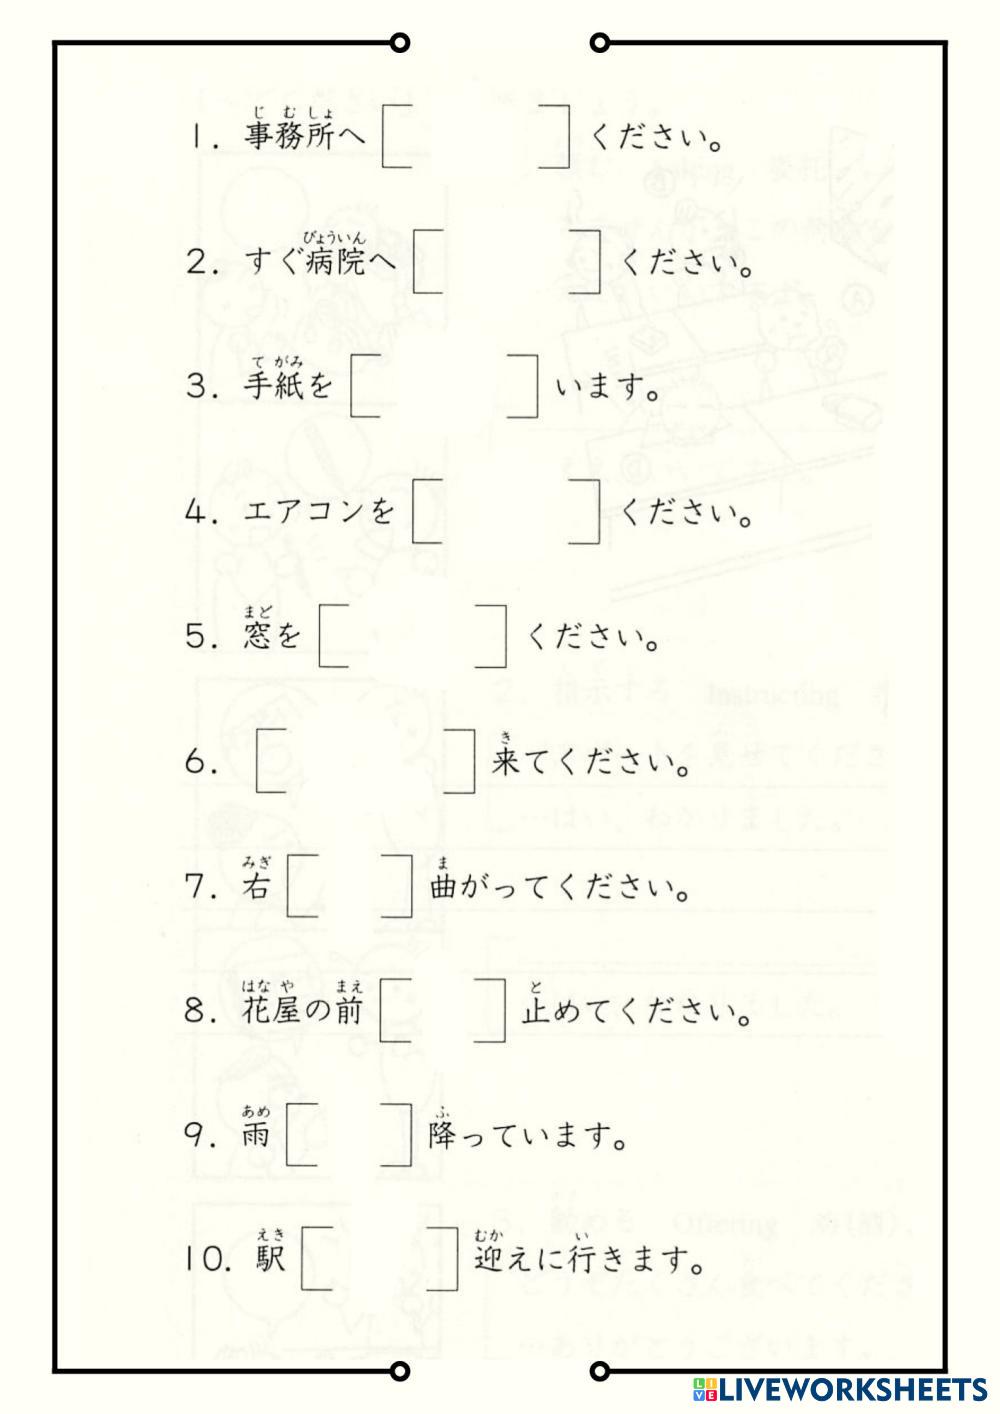 1. 事務所へ [ ] ください。
2. すぐ病院へ [ ] ください。
3. 手紙を [ ] います。
4. エアコンを [ ] ください。
5. 窓を [ ] ください。
6. [ ] 来てください。
7. 右 [ ] 曲がってください。
8. 花屋の前 [ ] 止めてください。
9. 雨 [ ] 降っています。
10. 駅 [ ] 迎えに行きます。
LIVEWORKSHEETS